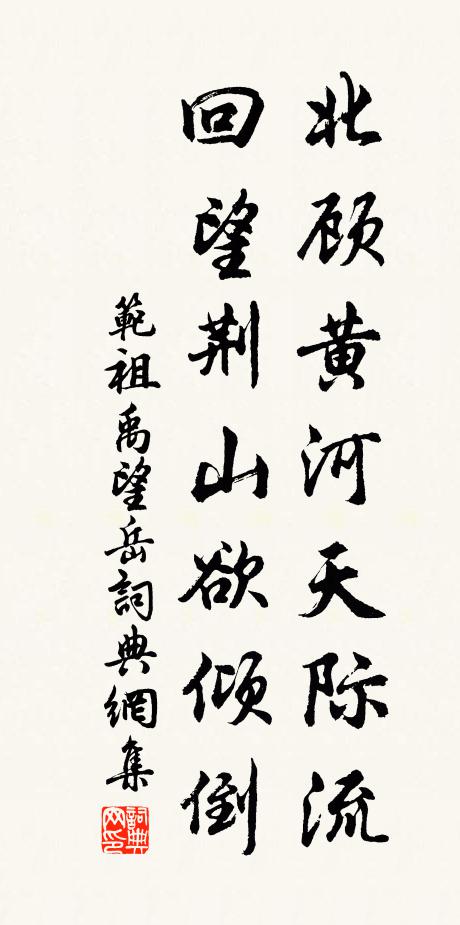 北顾黄河天际流
回望荆山欲倾倒
範祖禹望岳詞典網集
詞典网印